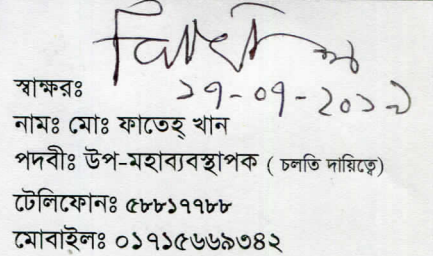 স্বাক্ষরঃ
১৭-০৭-২০১৯
নামঃ মোঃ ফাতেহ্ খান
পদবীঃ উপ-মহাব্যবস্থাপক ( চলতি দায়িত্বে)
টেলিফোনঃ ৫৮৮১৭৭৮৮
মোবাইলঃ ০১৭১৫৬৬৯৩৪২